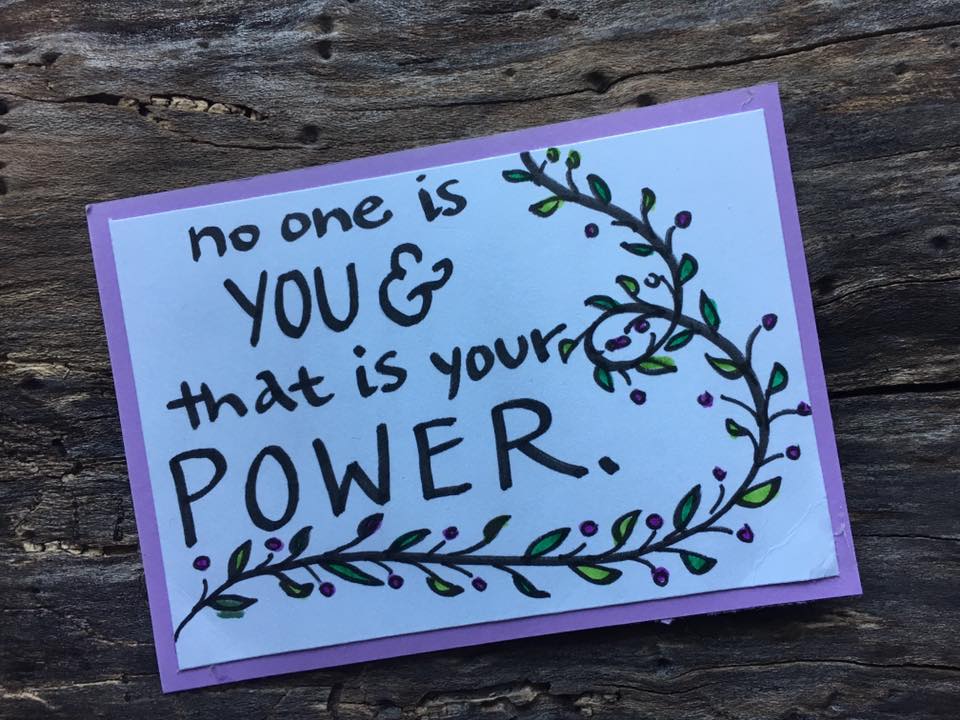 no one is
YOU &
that is your
POWER.